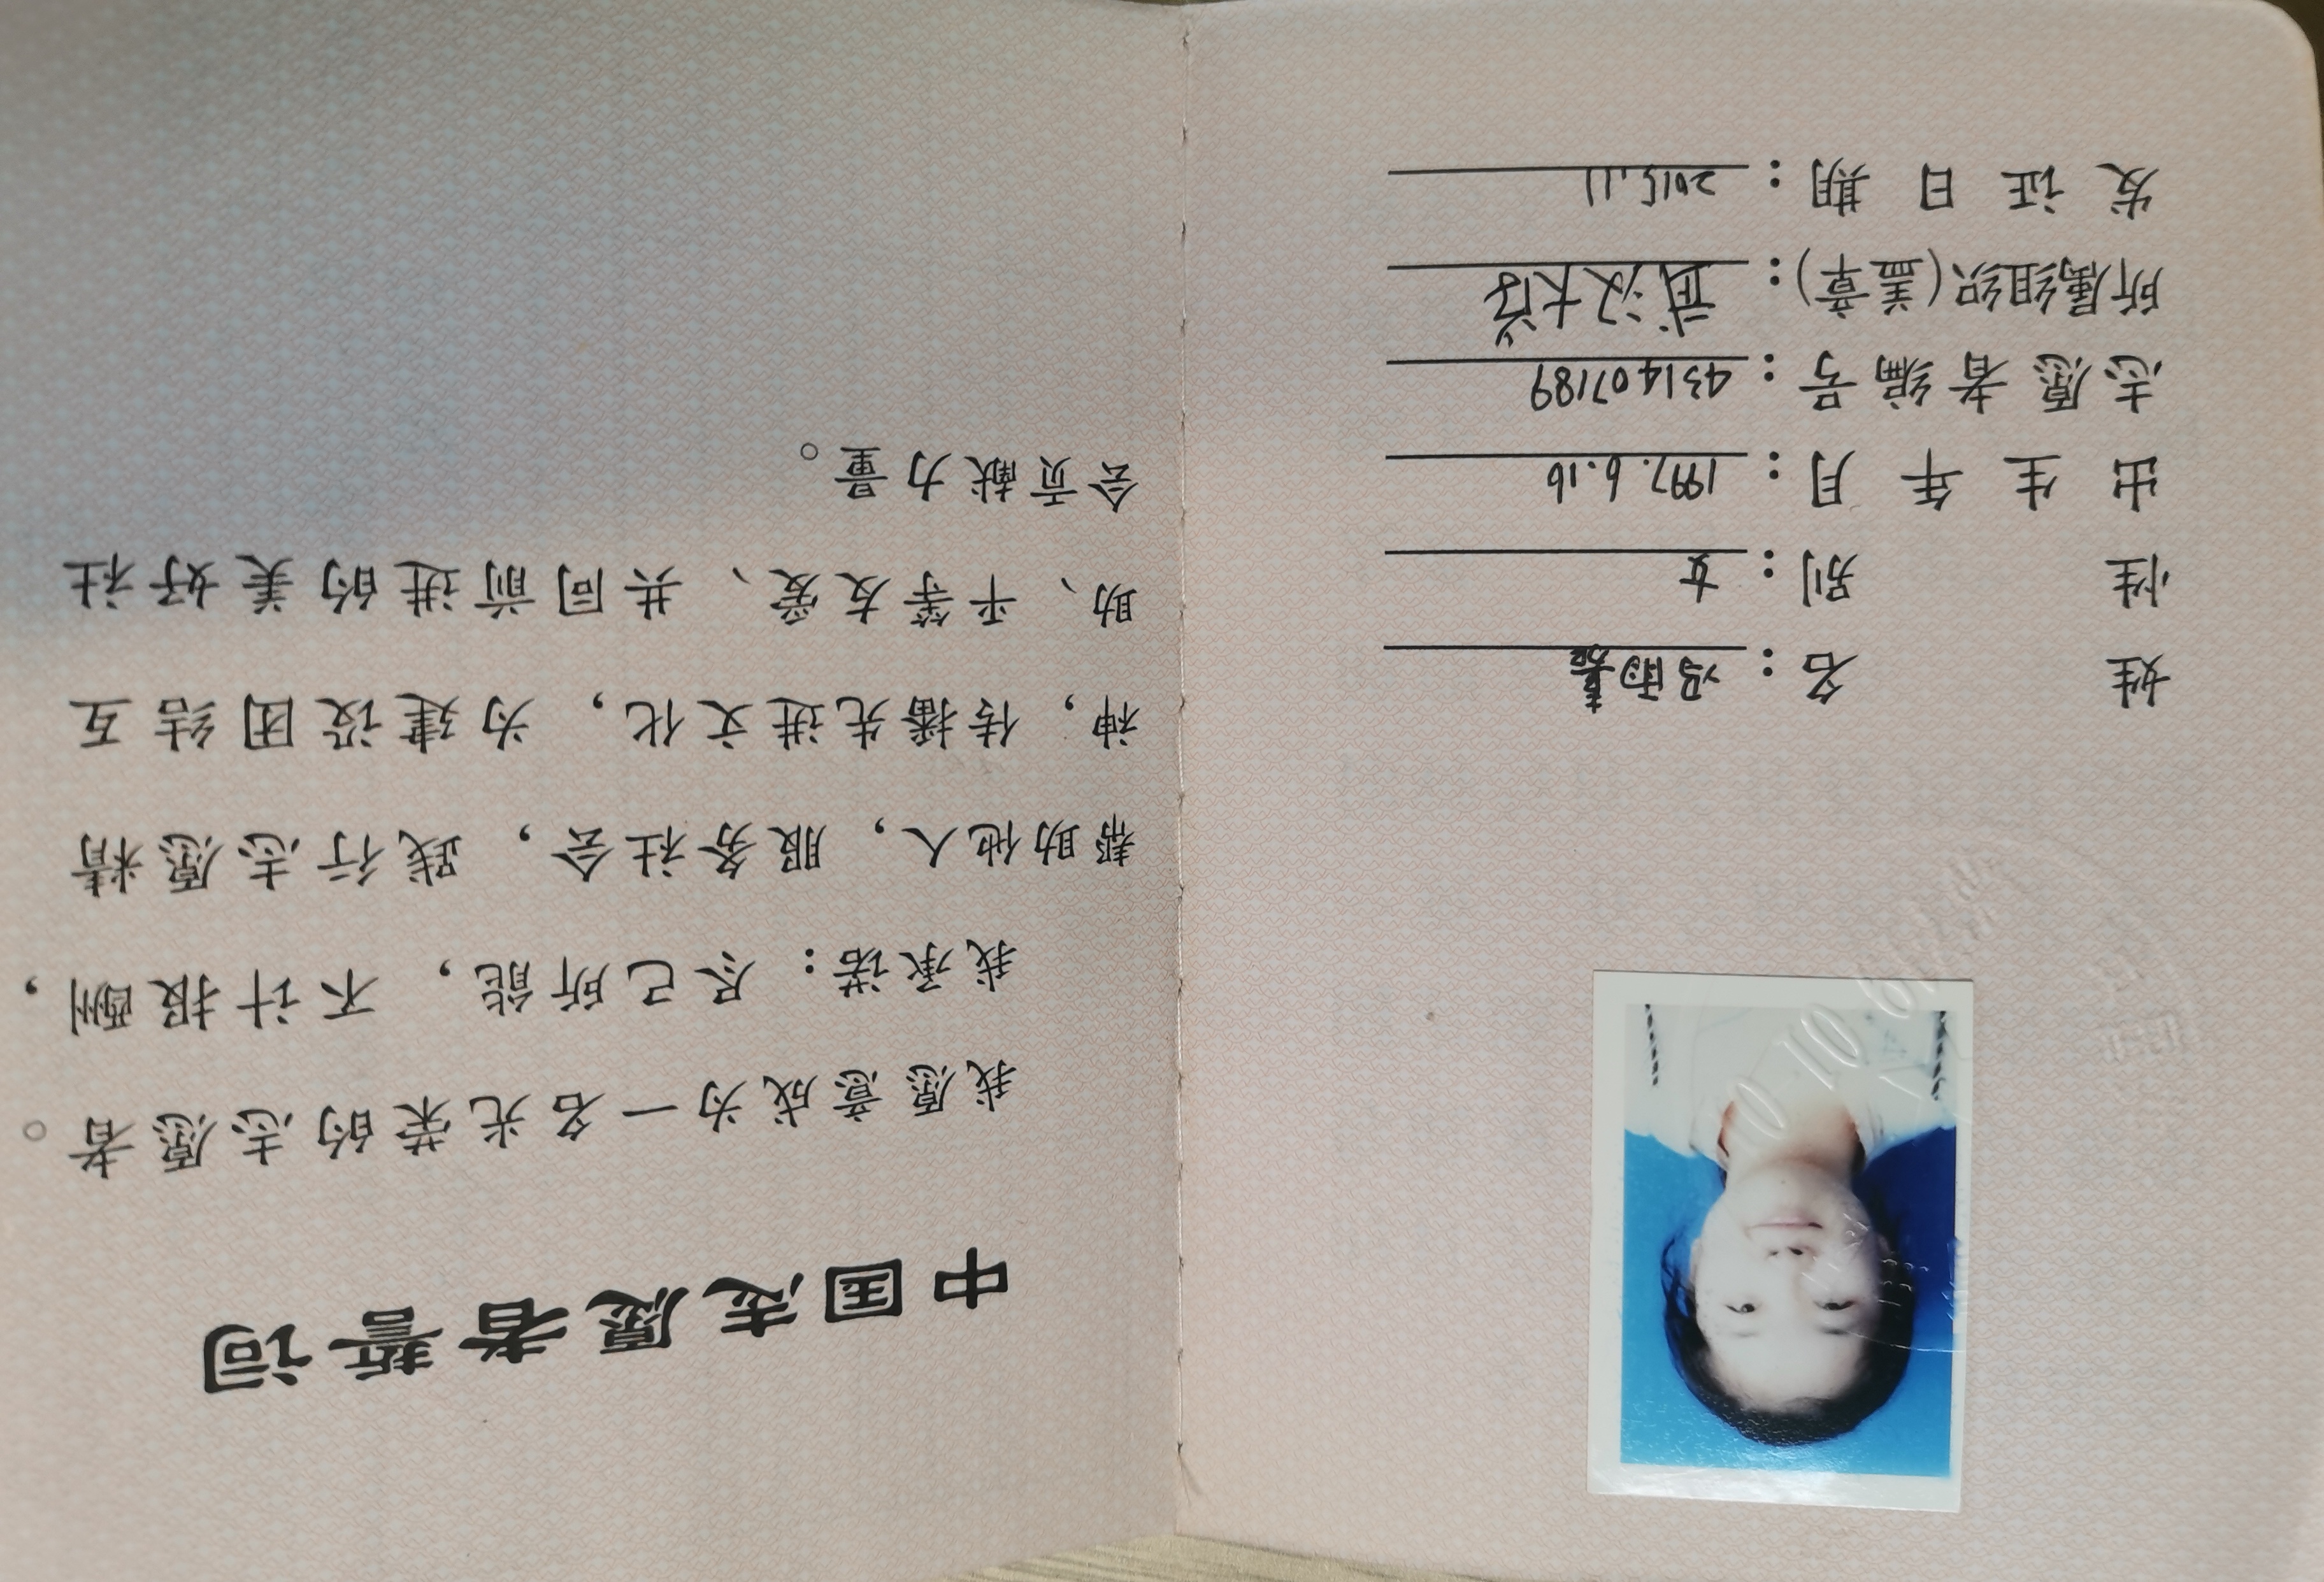 姓名：冯雨嘉
性别：女
出生年月：1997.6.16
志愿者编号：431407189
所属组织(盖章)：武汉大学
发证日期：2015.11
中国志愿者誓词
我愿意成为一名光荣的志愿者。
我承诺：尽己所能，不计报酬，
帮助他人，服务社会，践行志愿精
神，传播先进文化，为建设团结互
助、平等友爱、共同前进的美好社
会贡献力量。